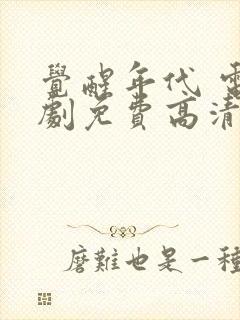 覺醒年代 電
劇免費高清
磨難也是一種